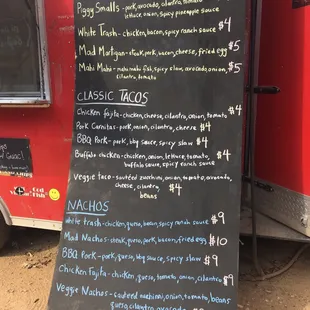 Piggy Smalls - pork, cilantro, tomato
lettuce, onion, spicy pineapple sauce
$4
White Trash - chicken, bacon, spicy ranch sauce
Mad Martigan - steak, pork, bacon, cheese, fried egg $5
Mahi Mahi - mahi mahi fish, spicy slaw, avocado, onion, $5
cilantro, tomato
CLASSIC TACOS
Chicken fajita - chicken, cheese, cilantro, onion, tomato $4
Pork Carnitas - pork, onion, cilantro, cheese $4
BBQ Pork - pork, bbq sauce, spicy slaw $4
Buffalo chicken - chicken, onion, lettuce, tomato, $4
buffalo sauce, spicy ranch sauce
Veggie taco - sautéed zucchini, onion, tomato, avocado,
cheese, cilantro,
beans $4
NACHOS
White trash - chicken, queso, bacon, spicy ranch sauce $9
Mad Nachos - steak, queso, pork, bacon, fried egg $10
BBQ Pork - pork, queso, bbq sauce, spicy slaw $9
Chicken fajita - chicken, queso, tomato, onion, cilantro $9
Veggie Nachos - sautéed zucchini, onion, tomato, beans
queso, cilantro, avocado $9